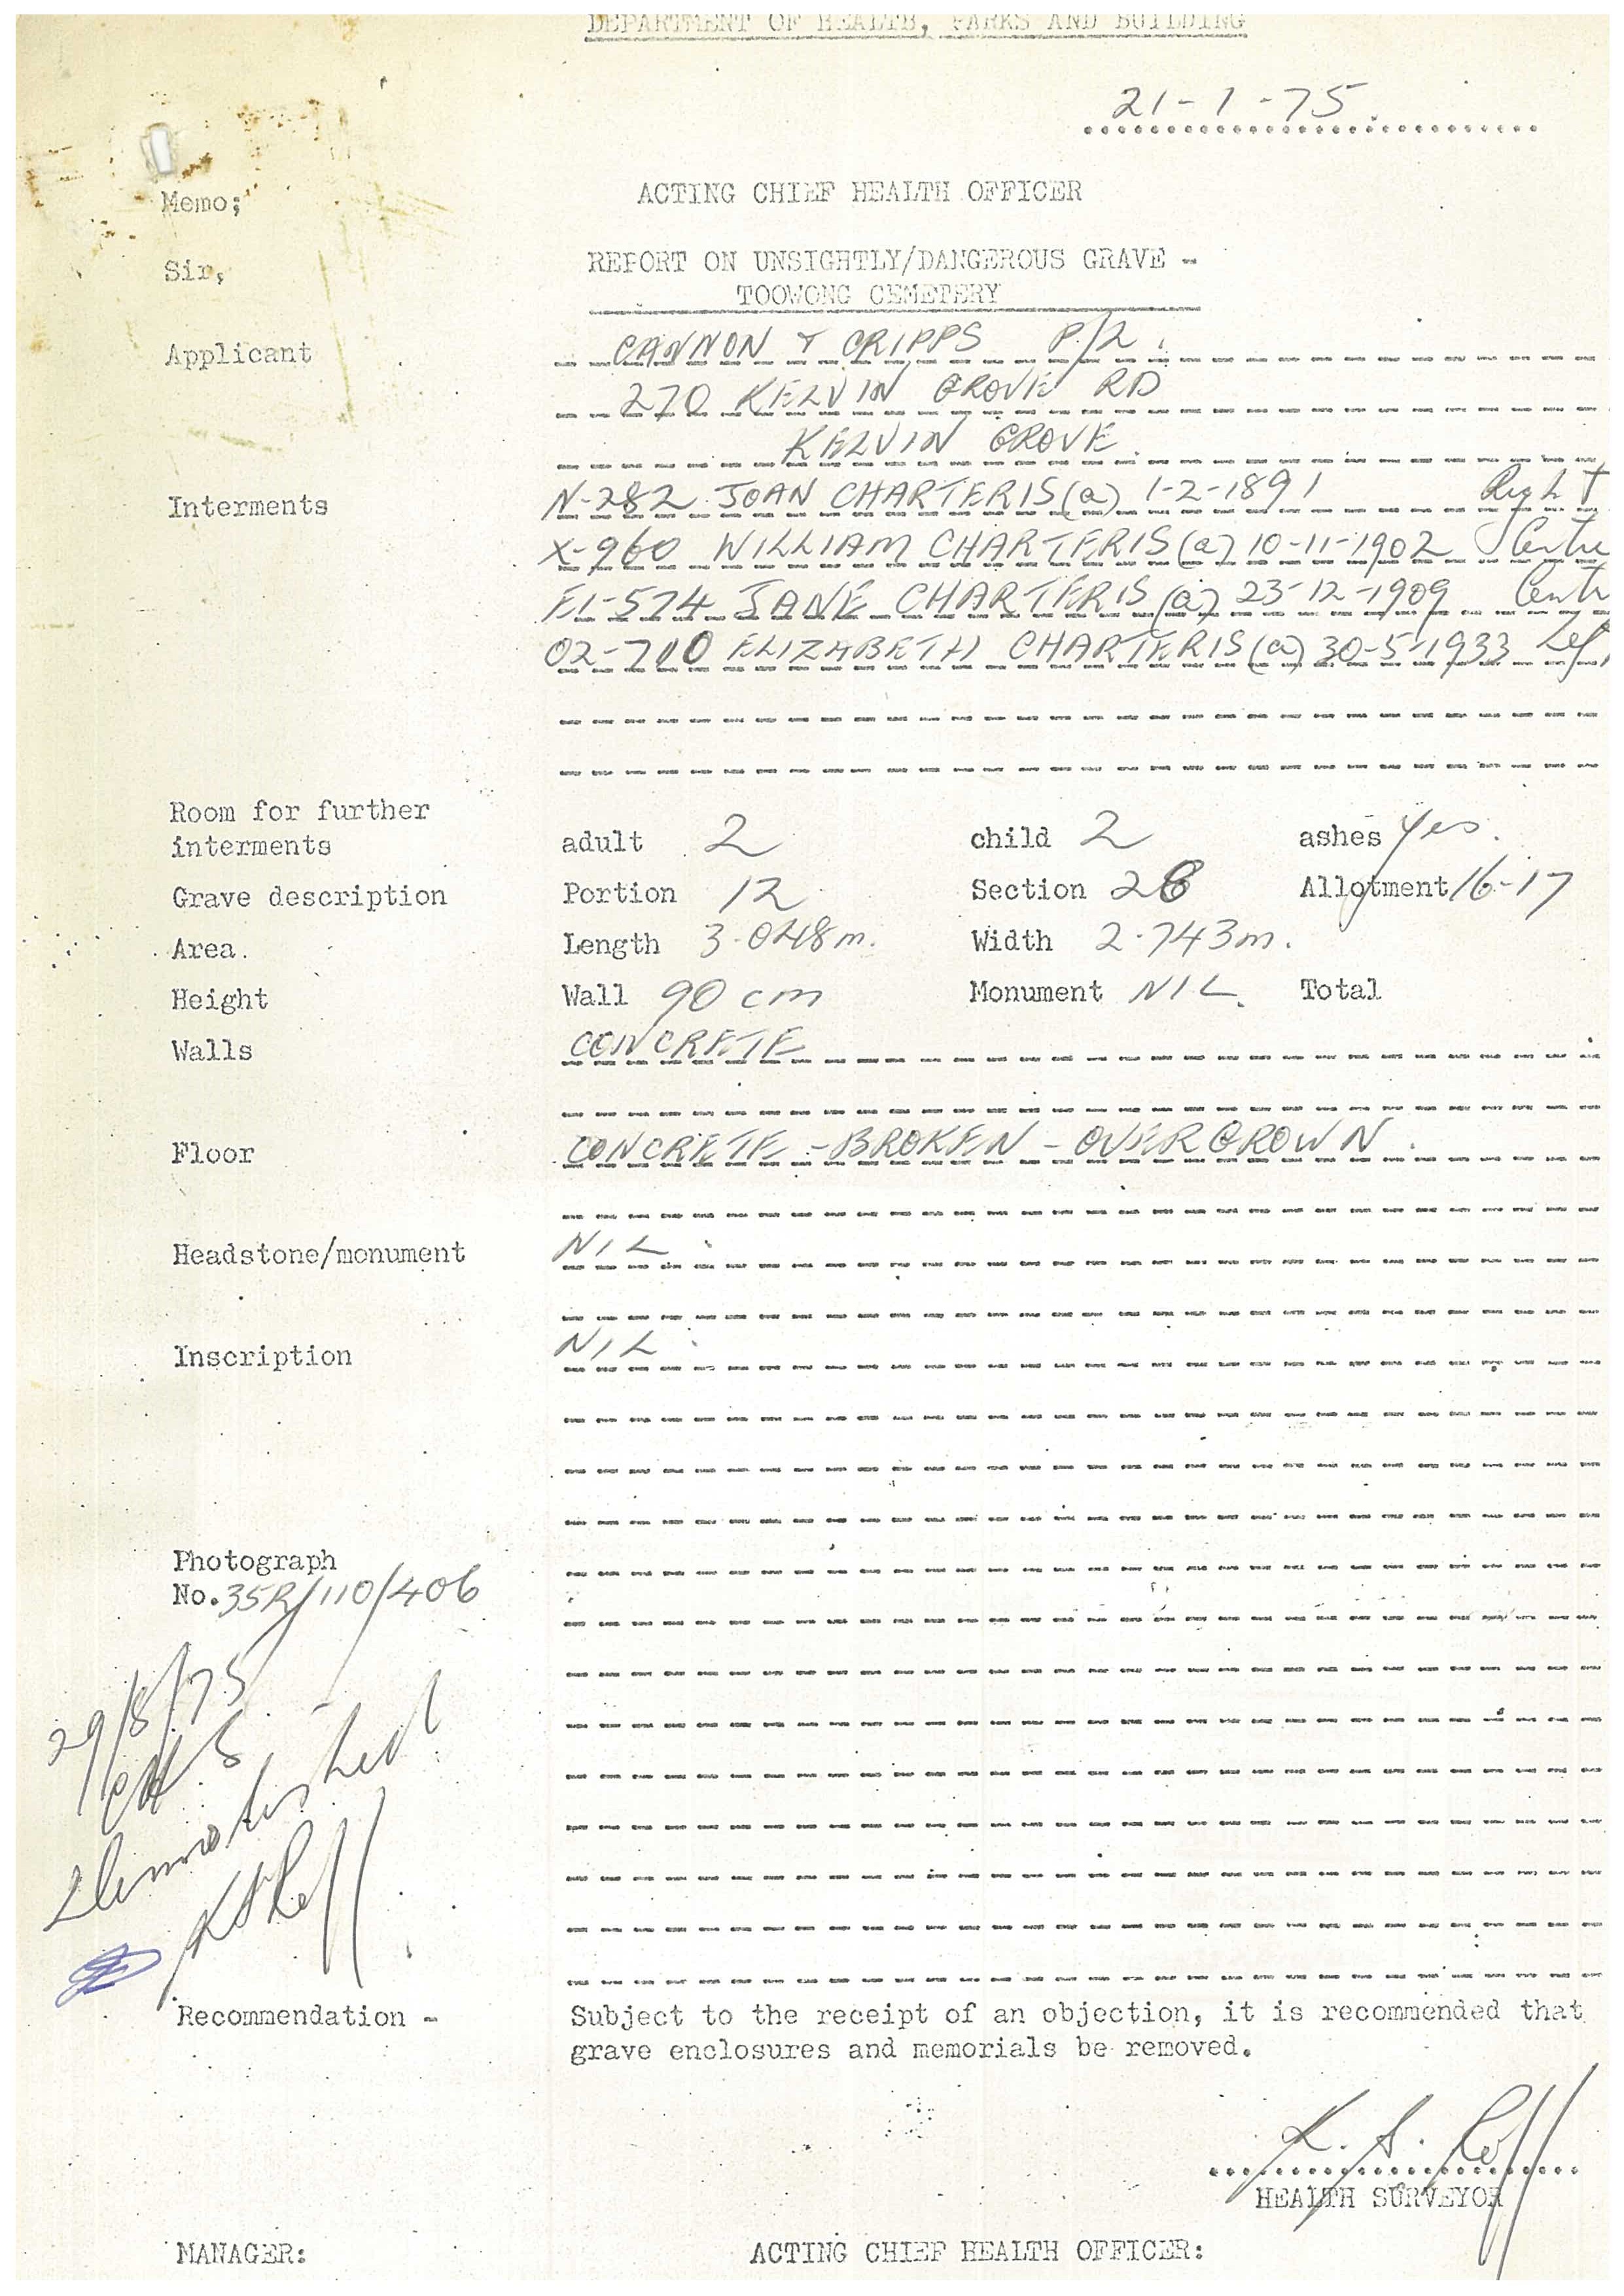 DEPARTMENT OF HEALTH, PARKS AND BUILDING
21-1-75
Memo; ACTING CHIEF HEALTH OFFICER
Sir, REPORT ON UNSIGHTLY/DANGEROUS GRAVE -
TOOWONG CEMETERY
Applicant CANNON & CRIPPS P/L.
270 KELVIN GROVE RD
KELVIN GROVE.
Interments N-282 JOAN CHARTERIS (a) 1-2-1891 Right
X-960 WILLIAM CHARTERIS (a) 10-11-1902 Centre
E1-574 JANE CHARTERIS (a) 23-12-1909 Centr
02-710 ELIZABETH CHARTERIS (a) 30-5-1933 Lef
Room for further
interments adult 2 child 2 ashes Yes.
Grave description Portion 12 Section 28 Allotment 16-17
Area. Length 3.048m. Width 2.743m.
Height Wall 90 cm Monument NIL. Total
Walls CONCRETE
Floor CONCRETE - BROKEN - OVERGROWN.
Headstone/monument NIL.
Inscription NIL.
Photograph
No. 35R/110/406
29/8/75
CHS
Demolished
K S Roff
Recommendation - Subject to the receipt of an objection, it is recommended that
grave enclosures and memorials be removed.
K. S. Roff
HEALTH SURVEYOR
MANAGER: ACTING CHIEF HEALTH OFFICER: